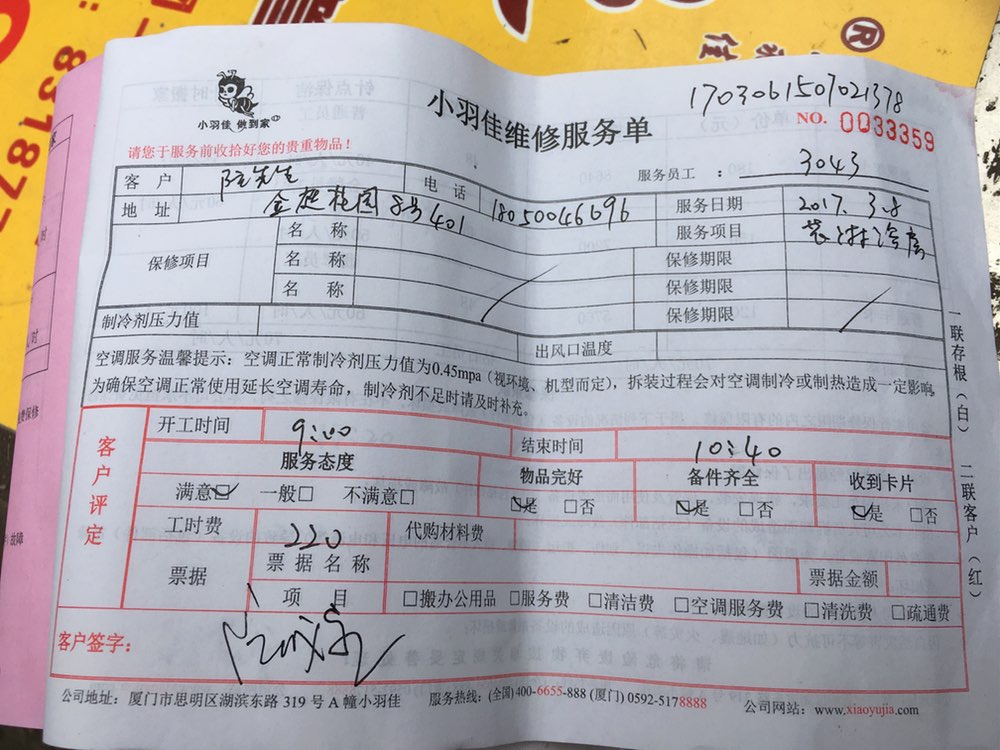 1703061507021378
小羽佳 做到家
小羽佳维修服务单
NO. 0033359
请您于服务前收拾好您的贵重物品！
服务员工 ： 3043
客 户 陆先生 电 话 18050046696 服务日期 2017.3.8
地 址 8号401 服务项目
保修项目 名 称 保修期限
名 称 保修期限
名 称 保修期限
制冷剂压力值 出风口温度
空调服务温馨提示：空调正常制冷剂压力值为0.45mpa（视环境、机型而定），拆装过程会对空调制冷或制热造成一定影响。
为确保空调正常使用延长空调寿命，制冷剂不足时请及时补充。
一联存根（白） 二联客户（红）
客户评定
开工时间 9:00 结束时间 10:40
服务态度 物品完好 备件齐全 收到卡片
满意☑ 一般□ 不满意□ ☑是 □否 ☑是 □否 ☑是 □否
工时费 220 代购材料费
票据 票据名称 票据金额
项 目 □搬办公用品 □服务费 □清洁费 □空调服务费 □清洗费 □疏通费
客户签字：
公司地址：厦门市思明区湖滨东路 319 号 A 幢小羽佳 服务热线：(全国)400-6655-888 (厦门) 0592-5178888 公司网站：www.xiaoyujia.com